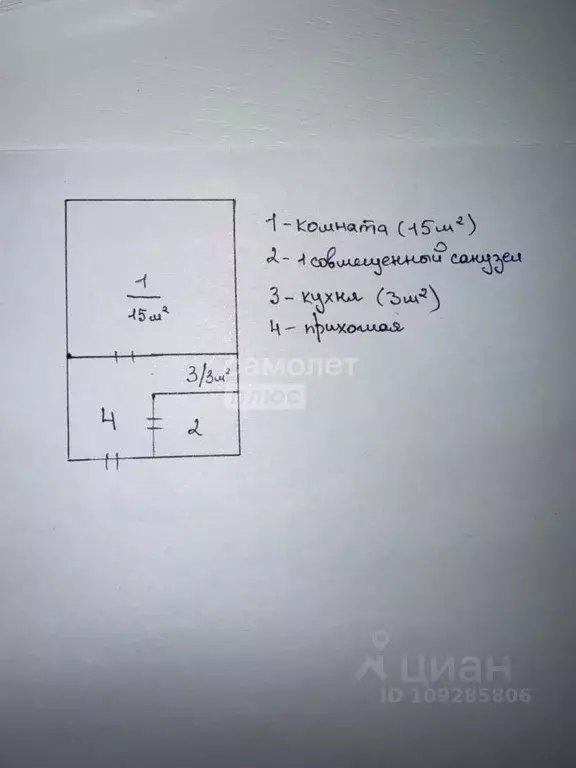 1-комната (15м²)
2-1 совмещенный санузел
3-кухня (3м²)
4-прихожая
1
15м²
самолет
плюс
3/3м²
4
2
циан
ID 109285806